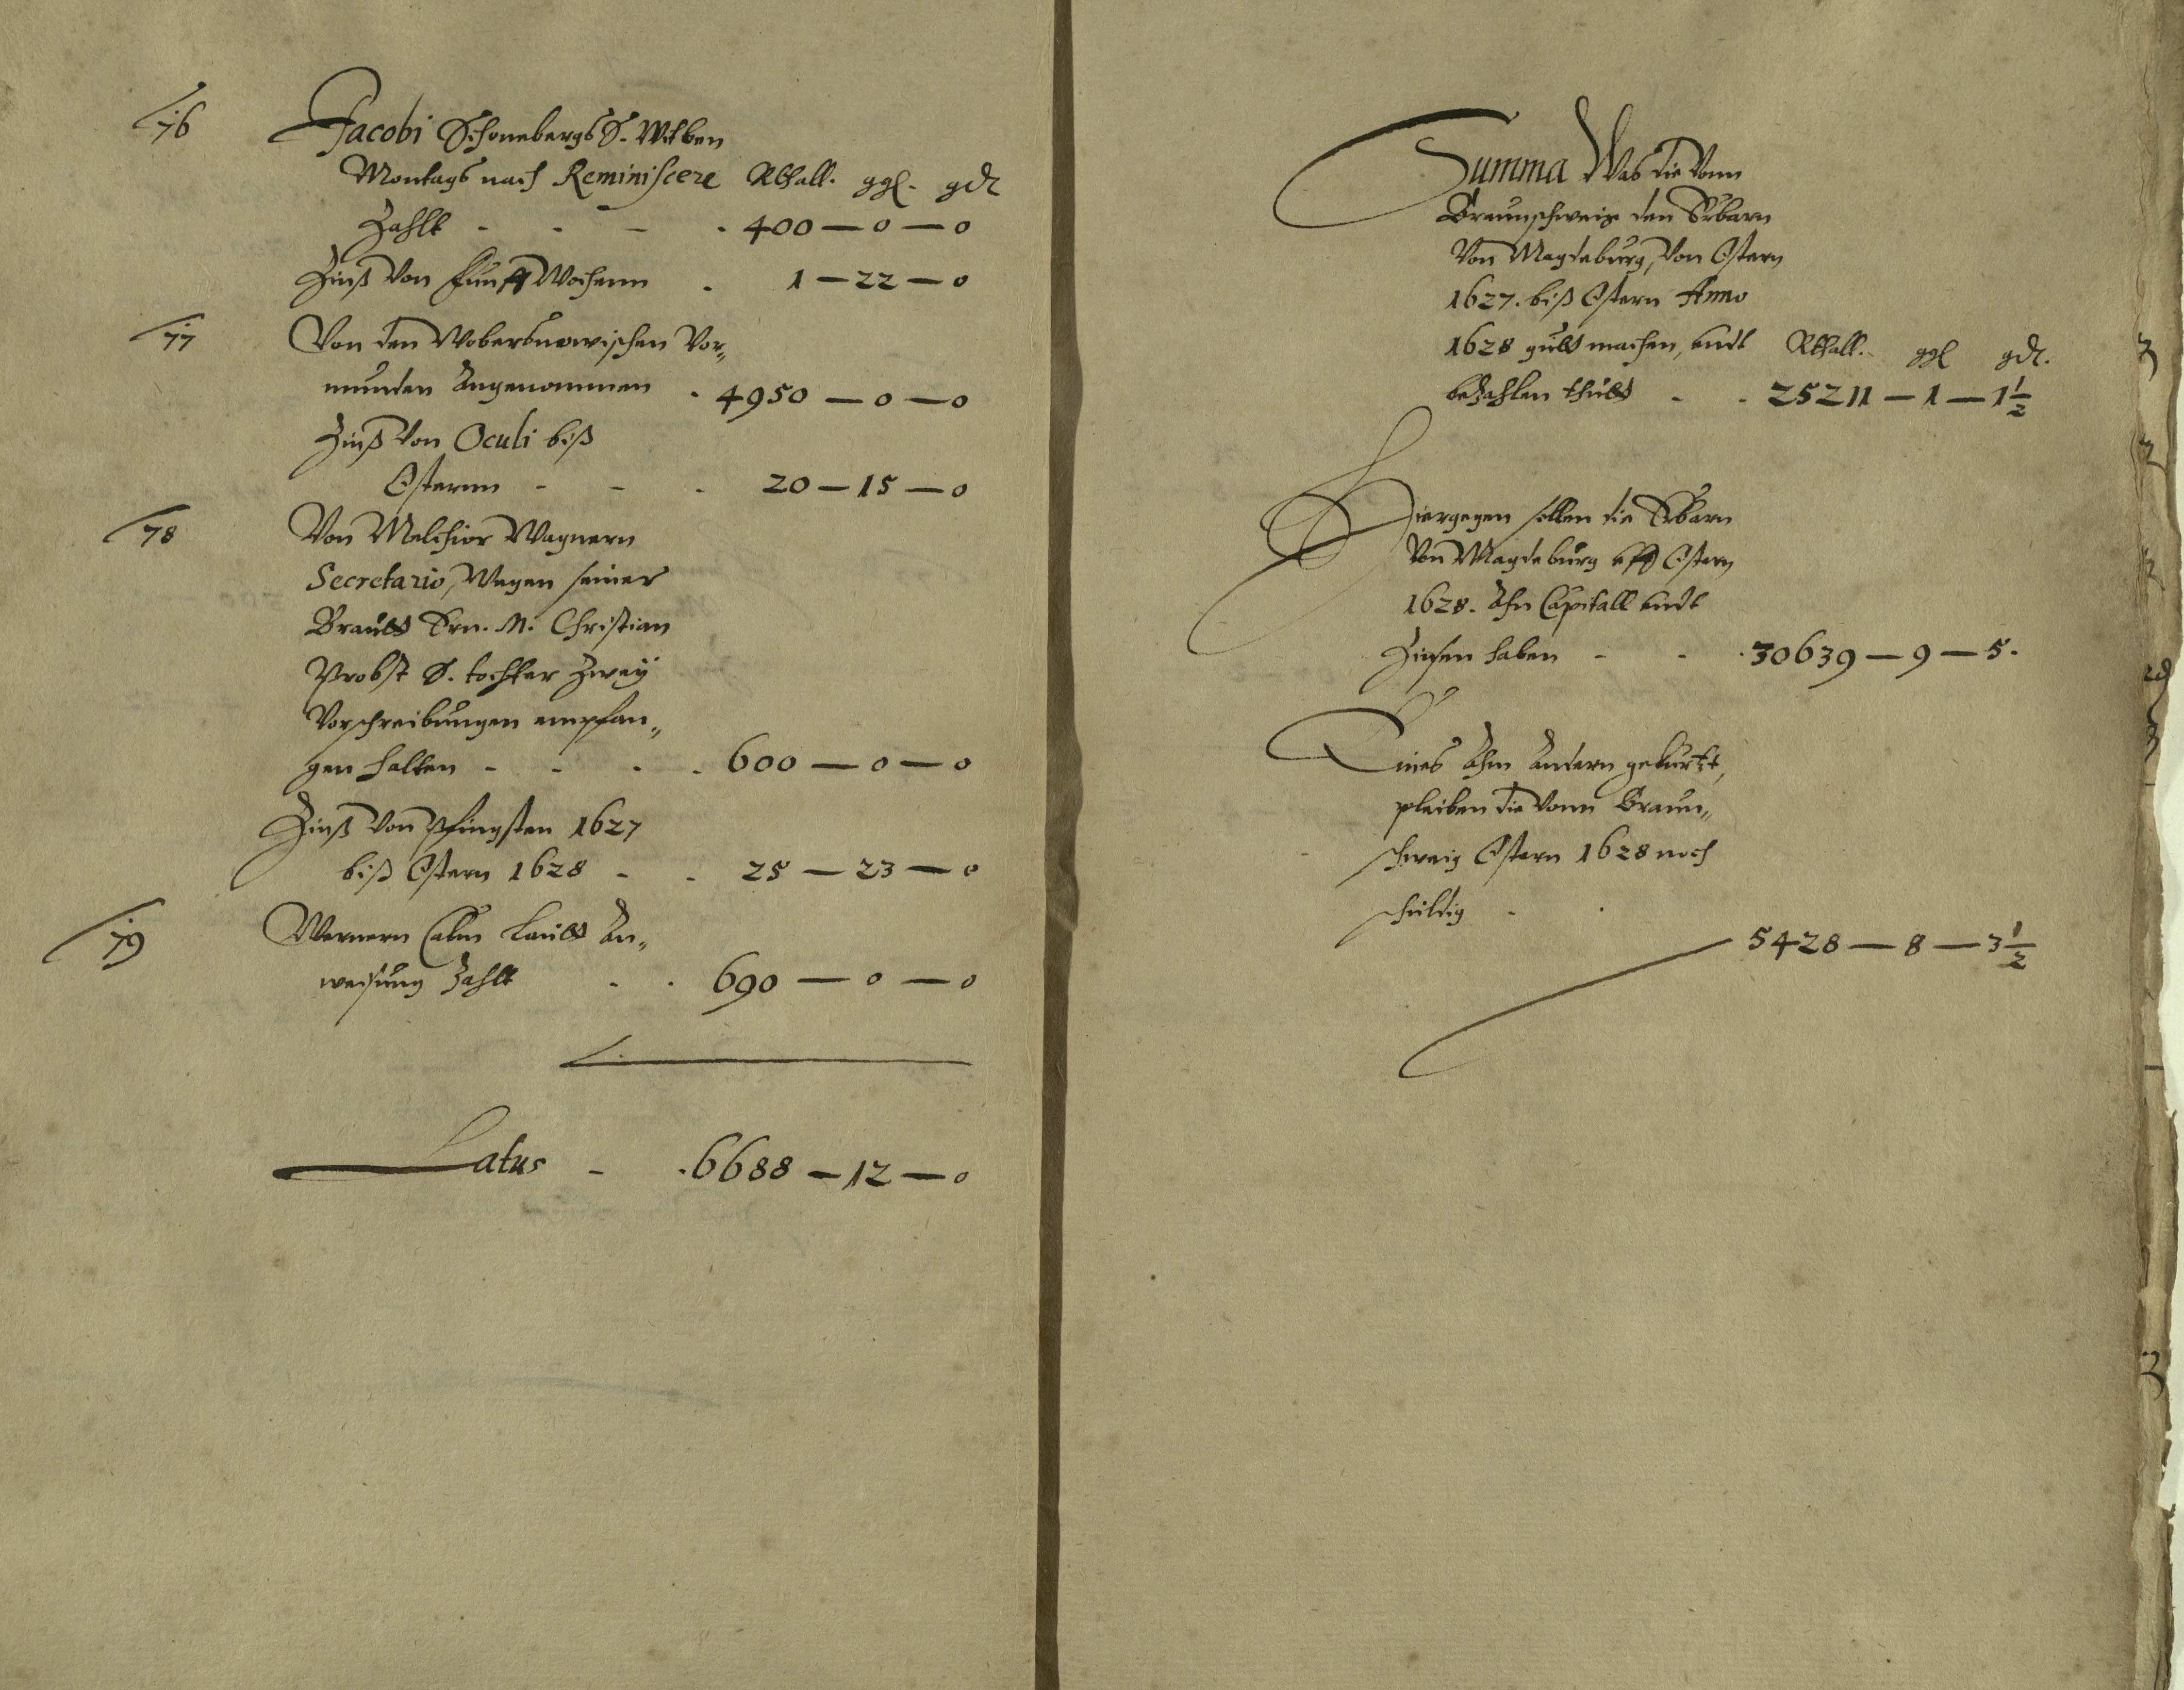 76
Jacobi Schonebergs S. Witben
Montags nach Reminiscere Rthall. ggl. gd
Zahlt - - - . 400 — 0 — 0
Zinß von Funff Wochenn . 1 — 22 — 0
77
Von den Vor„
munden Angenommen . 4950 — 0 — 0
Zinß von Oculi biß
Osternn - - - 20 — 15 — 0
78
Von Melchior Wagnern
Secretario, Wegen seiner
Brautt Hrn. M. Christian
Probst S. tochter Zwey
Vorschreibungen empfan„
gen halten - - . . 600 — 0 — 0
Zinß von Pfingsten 1627
biß Ostern 1628 - - 25 — 23 — 0
79
Wernern Calm lautt An„
weisung Zahlt . . 690 — 0 — 0
Latus - . 6688 — 12 — 0
Summa Was die vonn
Braunschweig den Erbarn
Von Magdeburg, von Ostern
1627. biß Ostern Anno
1628 gutt machen, undt Rthall. ggl gd.
beZahlen thutt - . 25211 — 1 — 1½
Hiergegen sollen die Erbarn
Von Magdeburg uff Ostern
1628. Ahn Capitall undt
Zinsen haben - - . 30639 — 9 — 5.
Eines Ahm Andern gekurtzt,
pleiben die vonn Braun„
schweig Ostern 1628 noch
schuldig - .
5428 — 8 — 3½